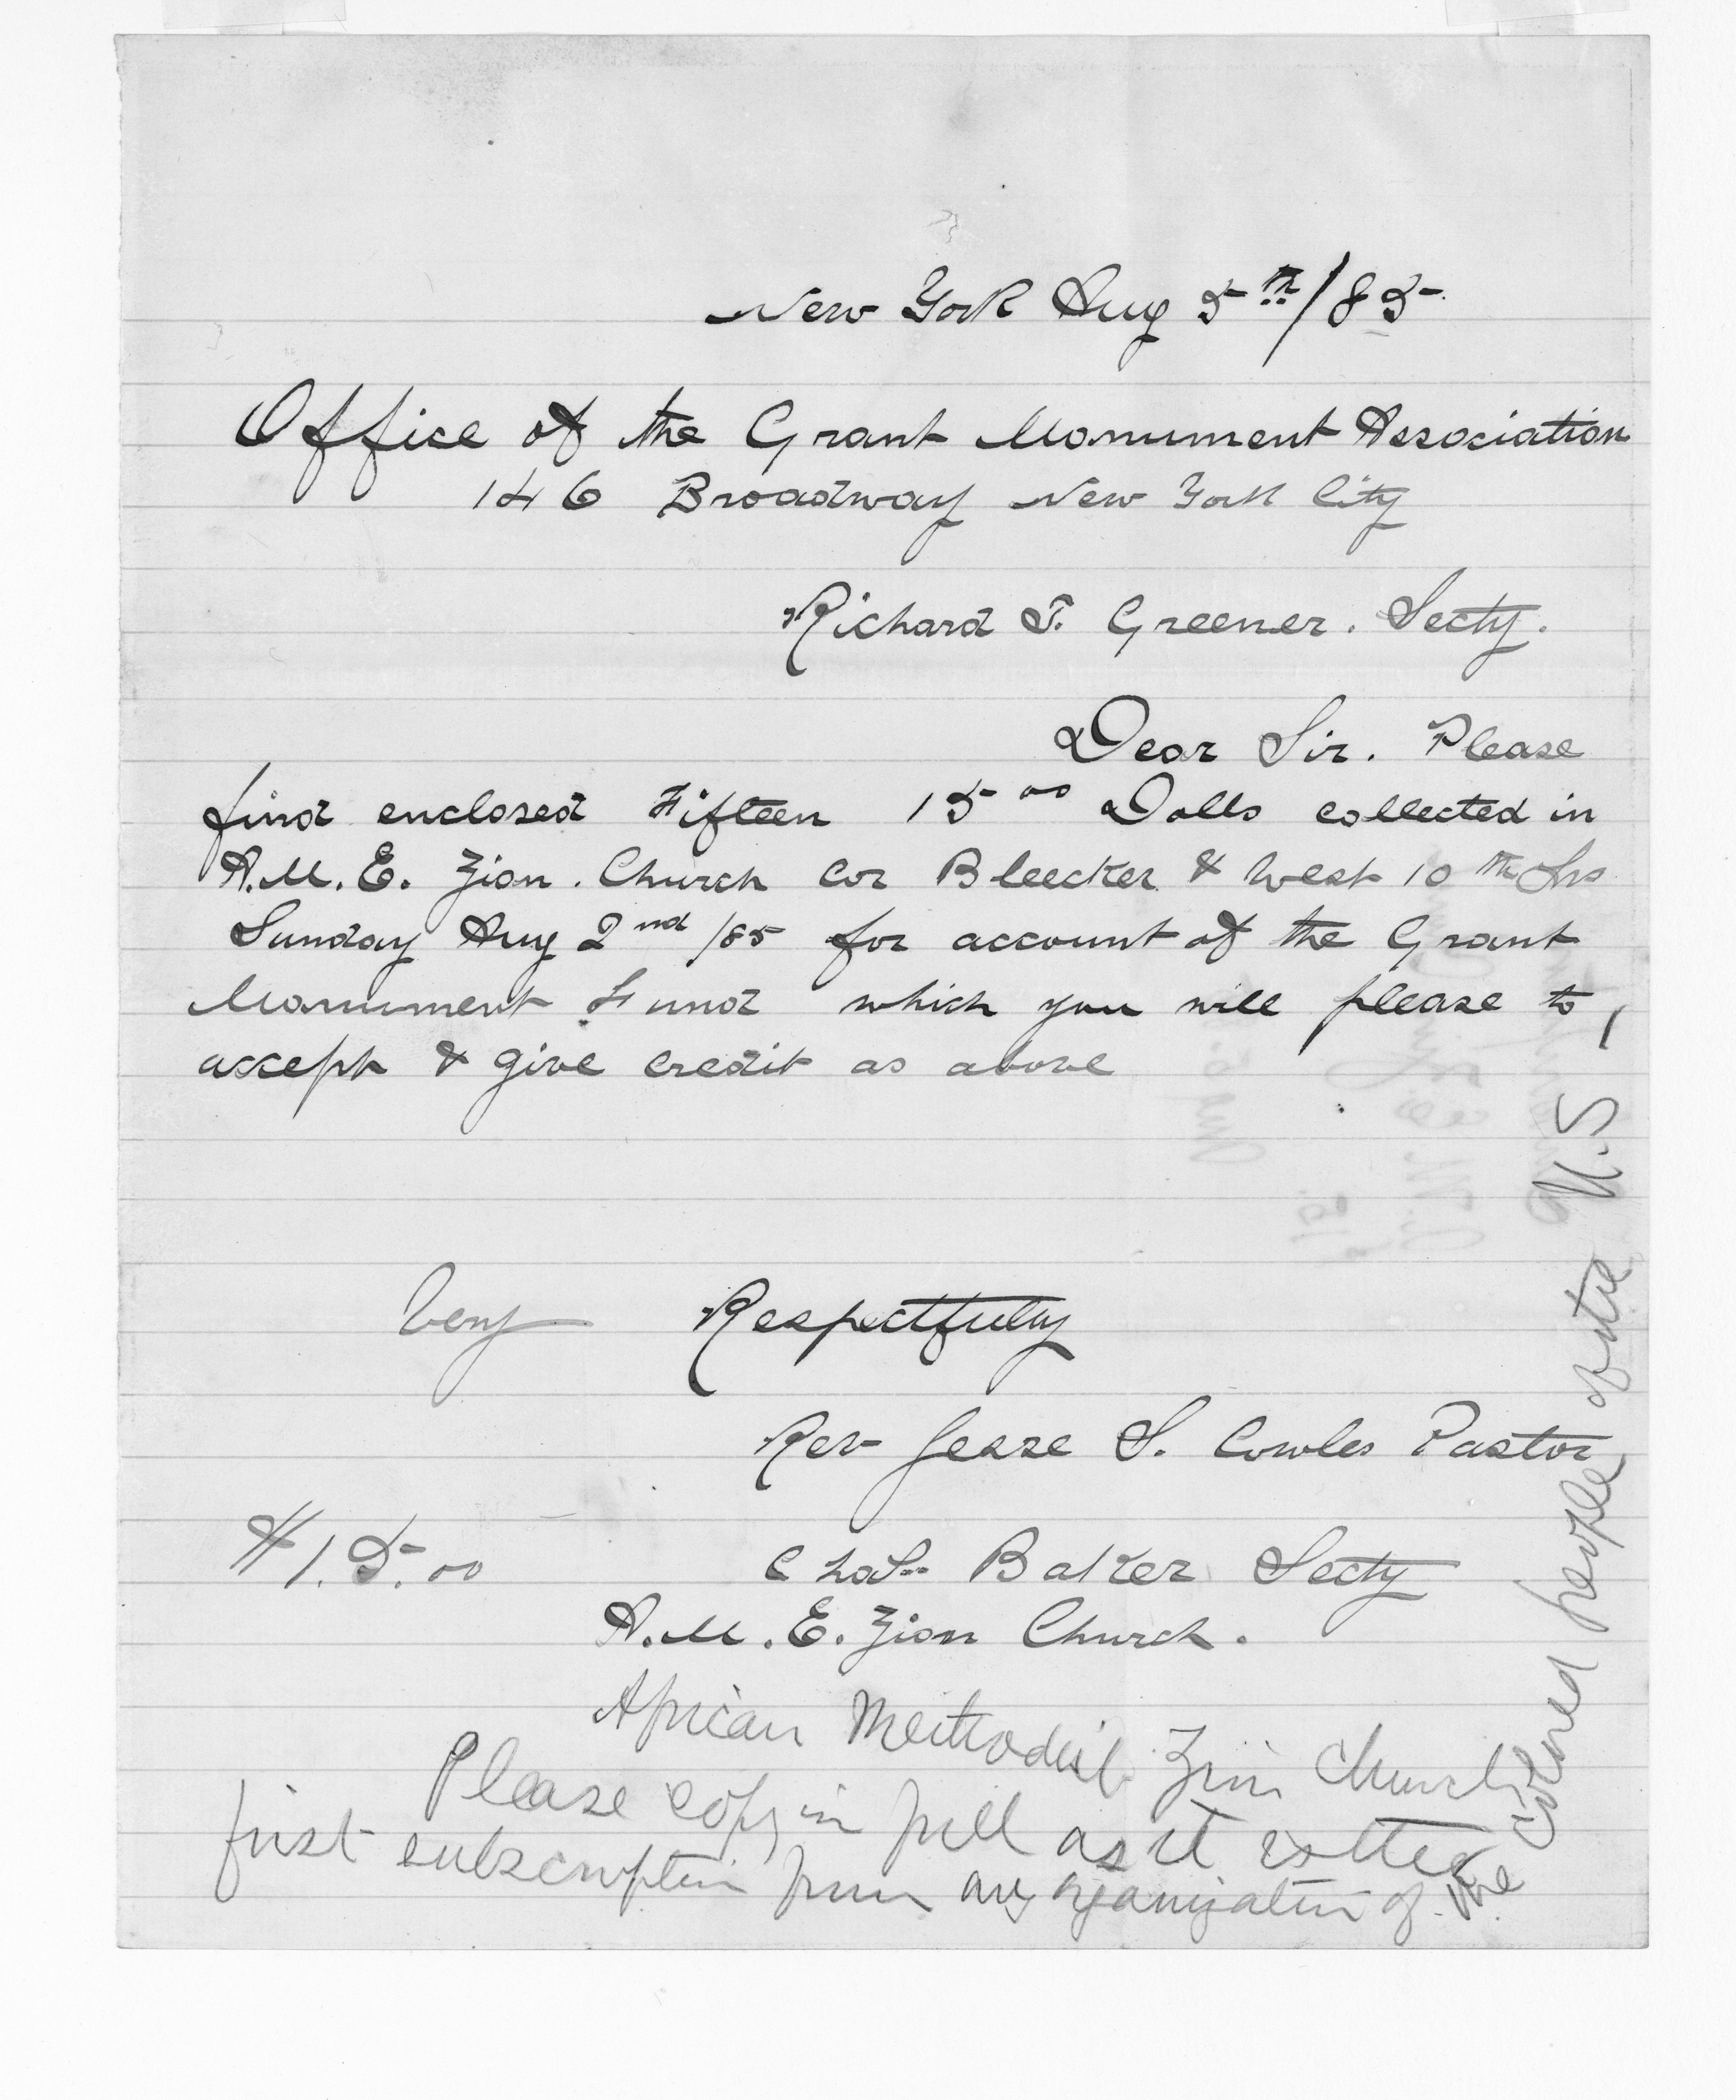 New York Aug 5th/85
Office of the Grant Monument Association
146 Broadway New York City
Richard T. Greener. Secty.
Dear Sir. Please
find enclosed Fifteen 15 00 Dolls collected in
A.M.E. Zion. Church Cor Bleecker & West 10th Sts
Sunday Aug 2nd /85 for account of the Grant
Monument Fund which you will please to
accept & give credit as above
Very Respectfully
Rev Jesse S. Cowles Pastor
$15.00 Chas. Baker Secty
A.M.E. Zion Church.
African Methodist Zion Church
Please copy in full as it is the
first subscription from any organization of the colored people of the U.S,